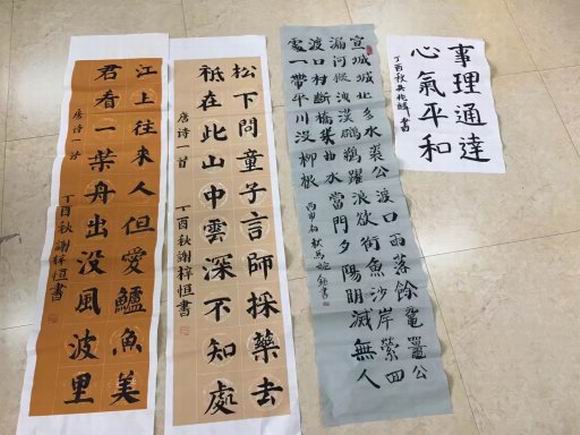 江上往来人但愛鱸魚美
君看一葉舟出没風波里
唐诗一首
丁酉秋謝梓恒書
松下問童子言師採藥去
祇在此山中雲深不知處
唐诗一首
丁酉秋謝梓恒書
宣城城北多水裘公渡口雨落餘鼋鼍公
漏河縱洩漠鸂鶒躍浪欲銜魚沙岸縈回
渡口村斷橋柴曲水當門夕陽明滅無人
處一帶平川没柳根
丙申初秋馬鈺書
事理通達
心氣平和
丁酉秋吴書